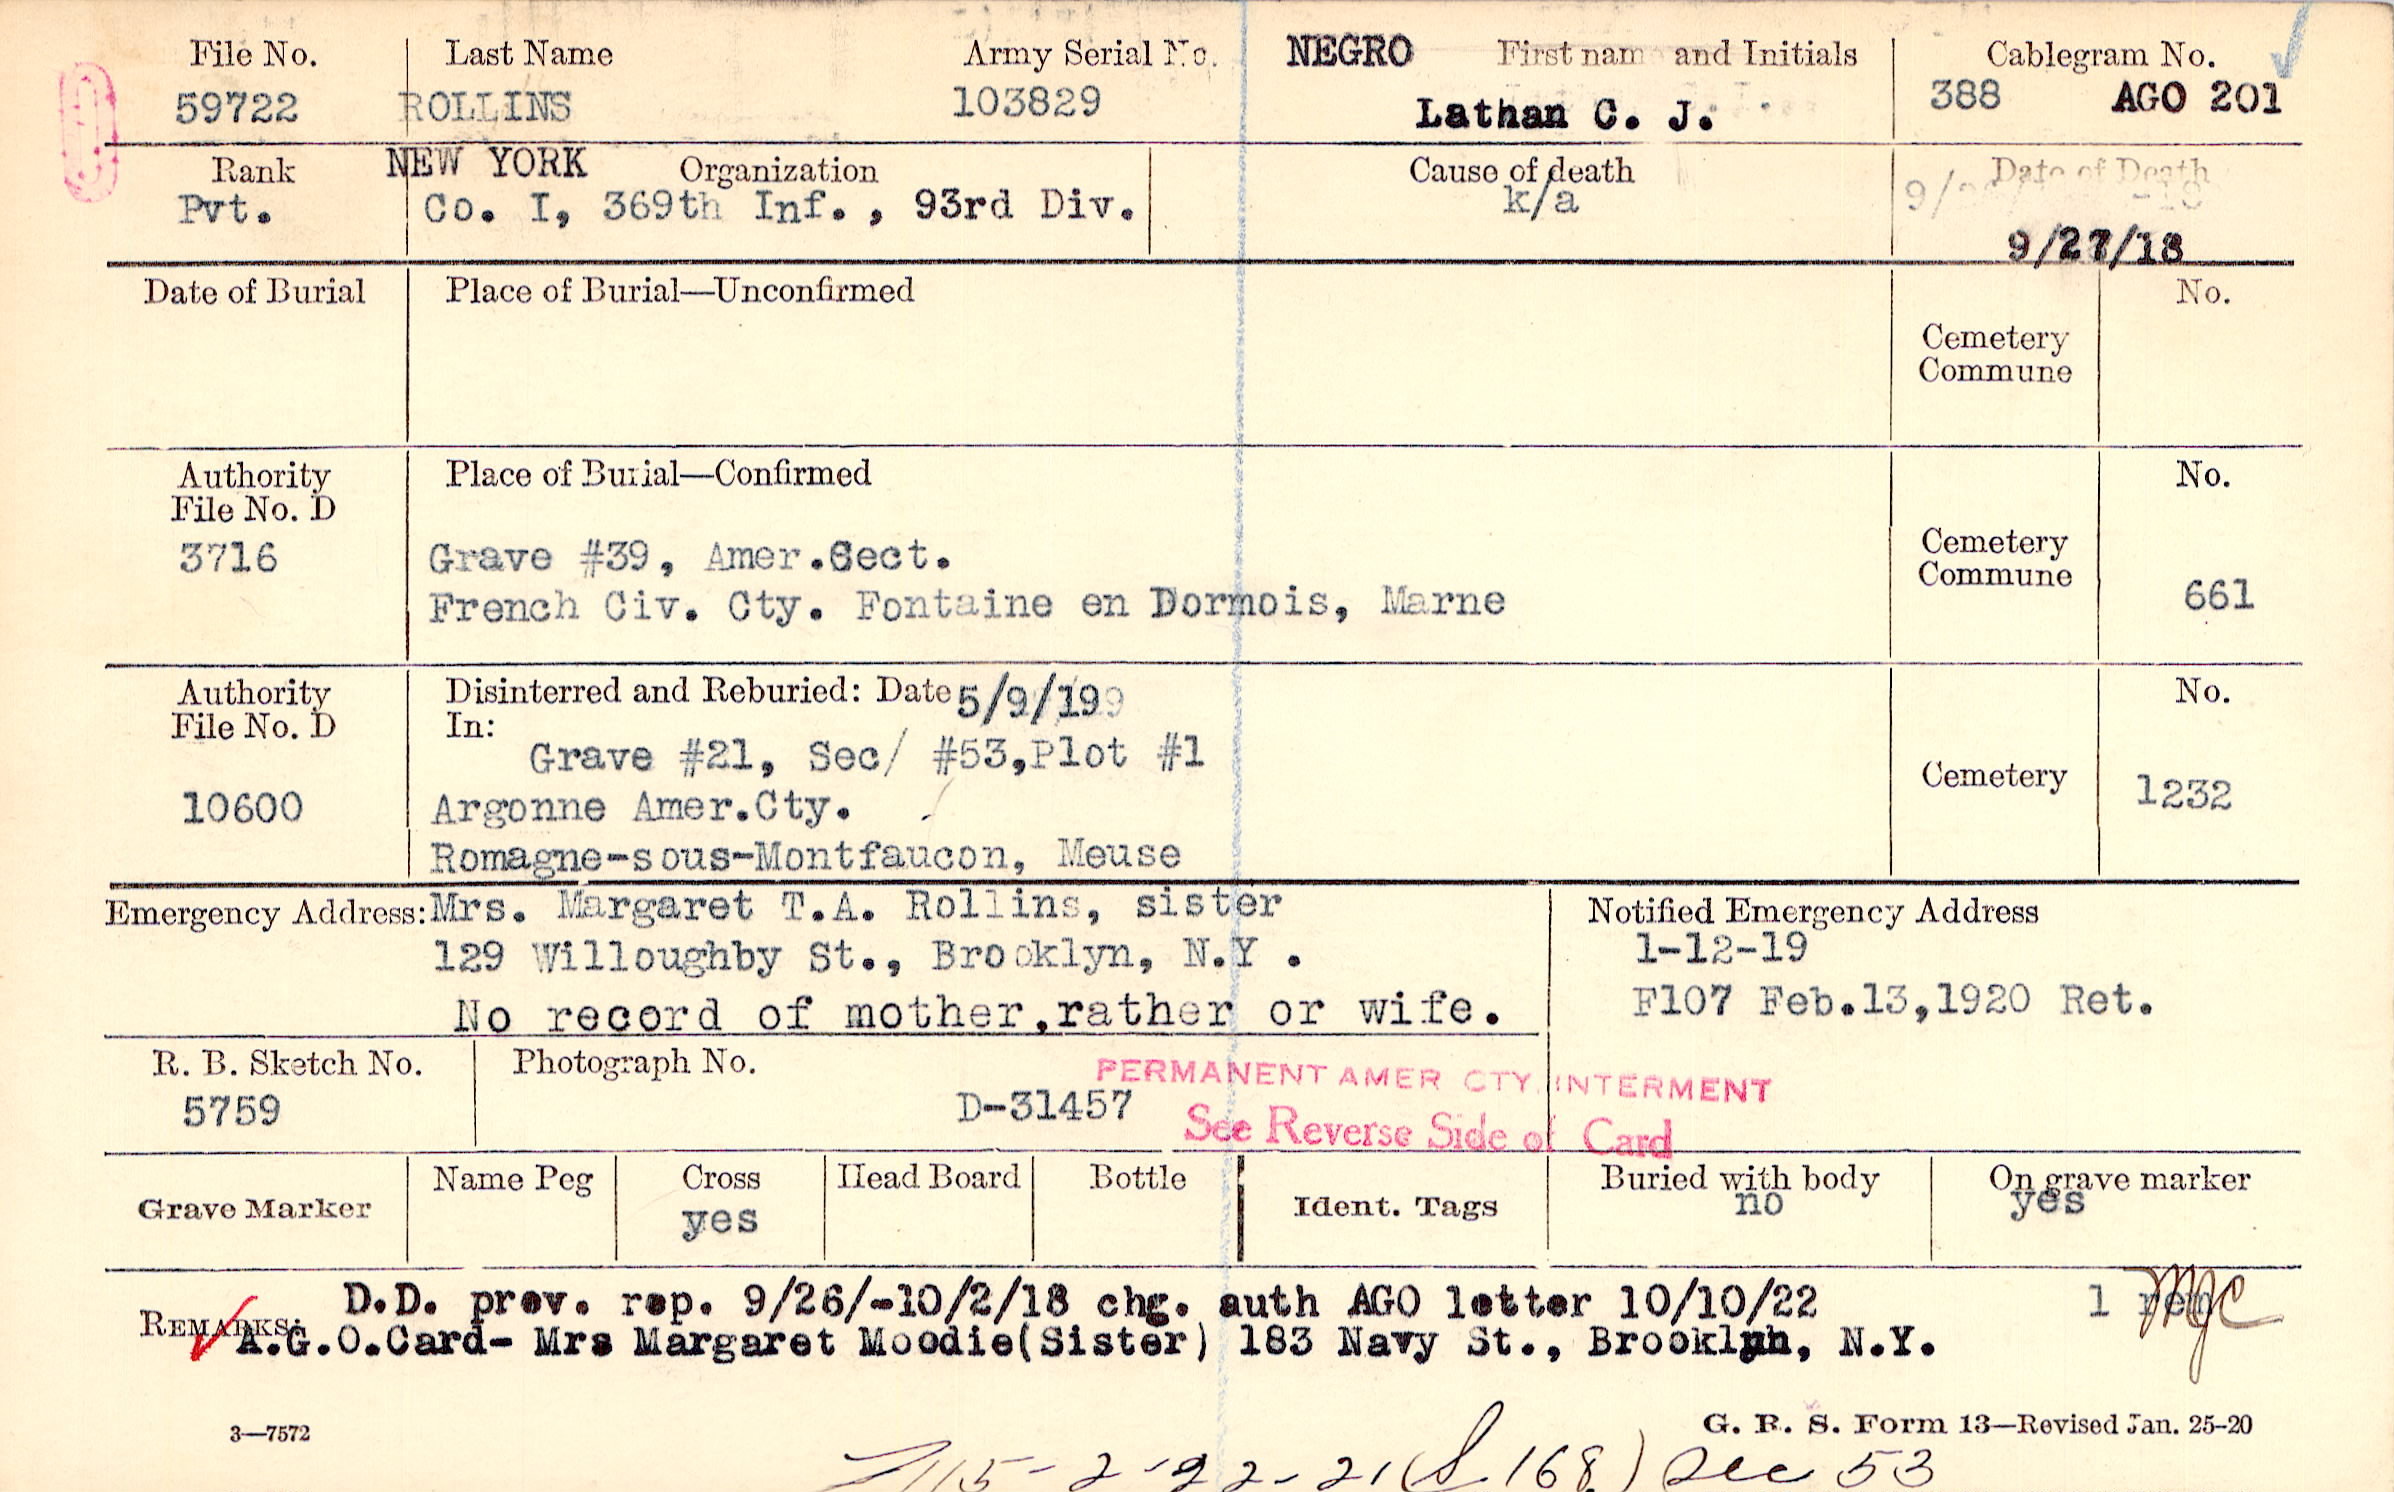 File No. Last Name Army Serial No. NEGRO First name and Initials Cablegram No.
59722 ROLLINS 103829 Lathan C. J. 388 AGO 201
Rank NEW YORK Organization Cause of death Date of Death
Pvt. Co. I, 369th Inf., 93rd Div. k/a
9/27/18
Date of Burial Place of Burial—Unconfirmed No.
Cemetery
Commune
Authority Place of Burial—Confirmed No.
File No. D
3716 Grave #39, Amer.Sect. Cemetery
Commune
French Civ. Cty. Fontaine en Dormois, Marne 661
Authority Disinterred and Reburied: Date 5/9/19 No.
File No. D In:
Grave #21, Sec/ #53,Plot #1 Cemetery
10600 Argonne Amer.Cty. 1232
Romagne-sous-Montfaucon, Meuse
Emergency Address: Mrs. Margaret T.A. Rollins, sister Notified Emergency Address
129 Willoughby St., Brooklyn, N.Y . 1-12-19
No record of mother,rather or wife. F107 Feb.13,1920 Ret.
R. B. Sketch No. Photograph No. PERMANENT AMER CTY. INTERMENT
5759 D-31457 See Reverse Side of Card
Grave Marker Name Peg Cross Head Board Bottle Ident. Tags Buried with body On grave marker
yes no yes
D.D. prev. rep. 9/26/-10/2/18 chg. auth AGO letter 10/10/22 1 rep
REMARKS: A.G.O.Card- Mrs Margaret Moodie(Sister) 183 Navy St., Brooklyn, N.Y.
3—7572 G. R. S. Form 13—Revised Jan. 25-20
115-2-22-21 (S. 168) Sec 53